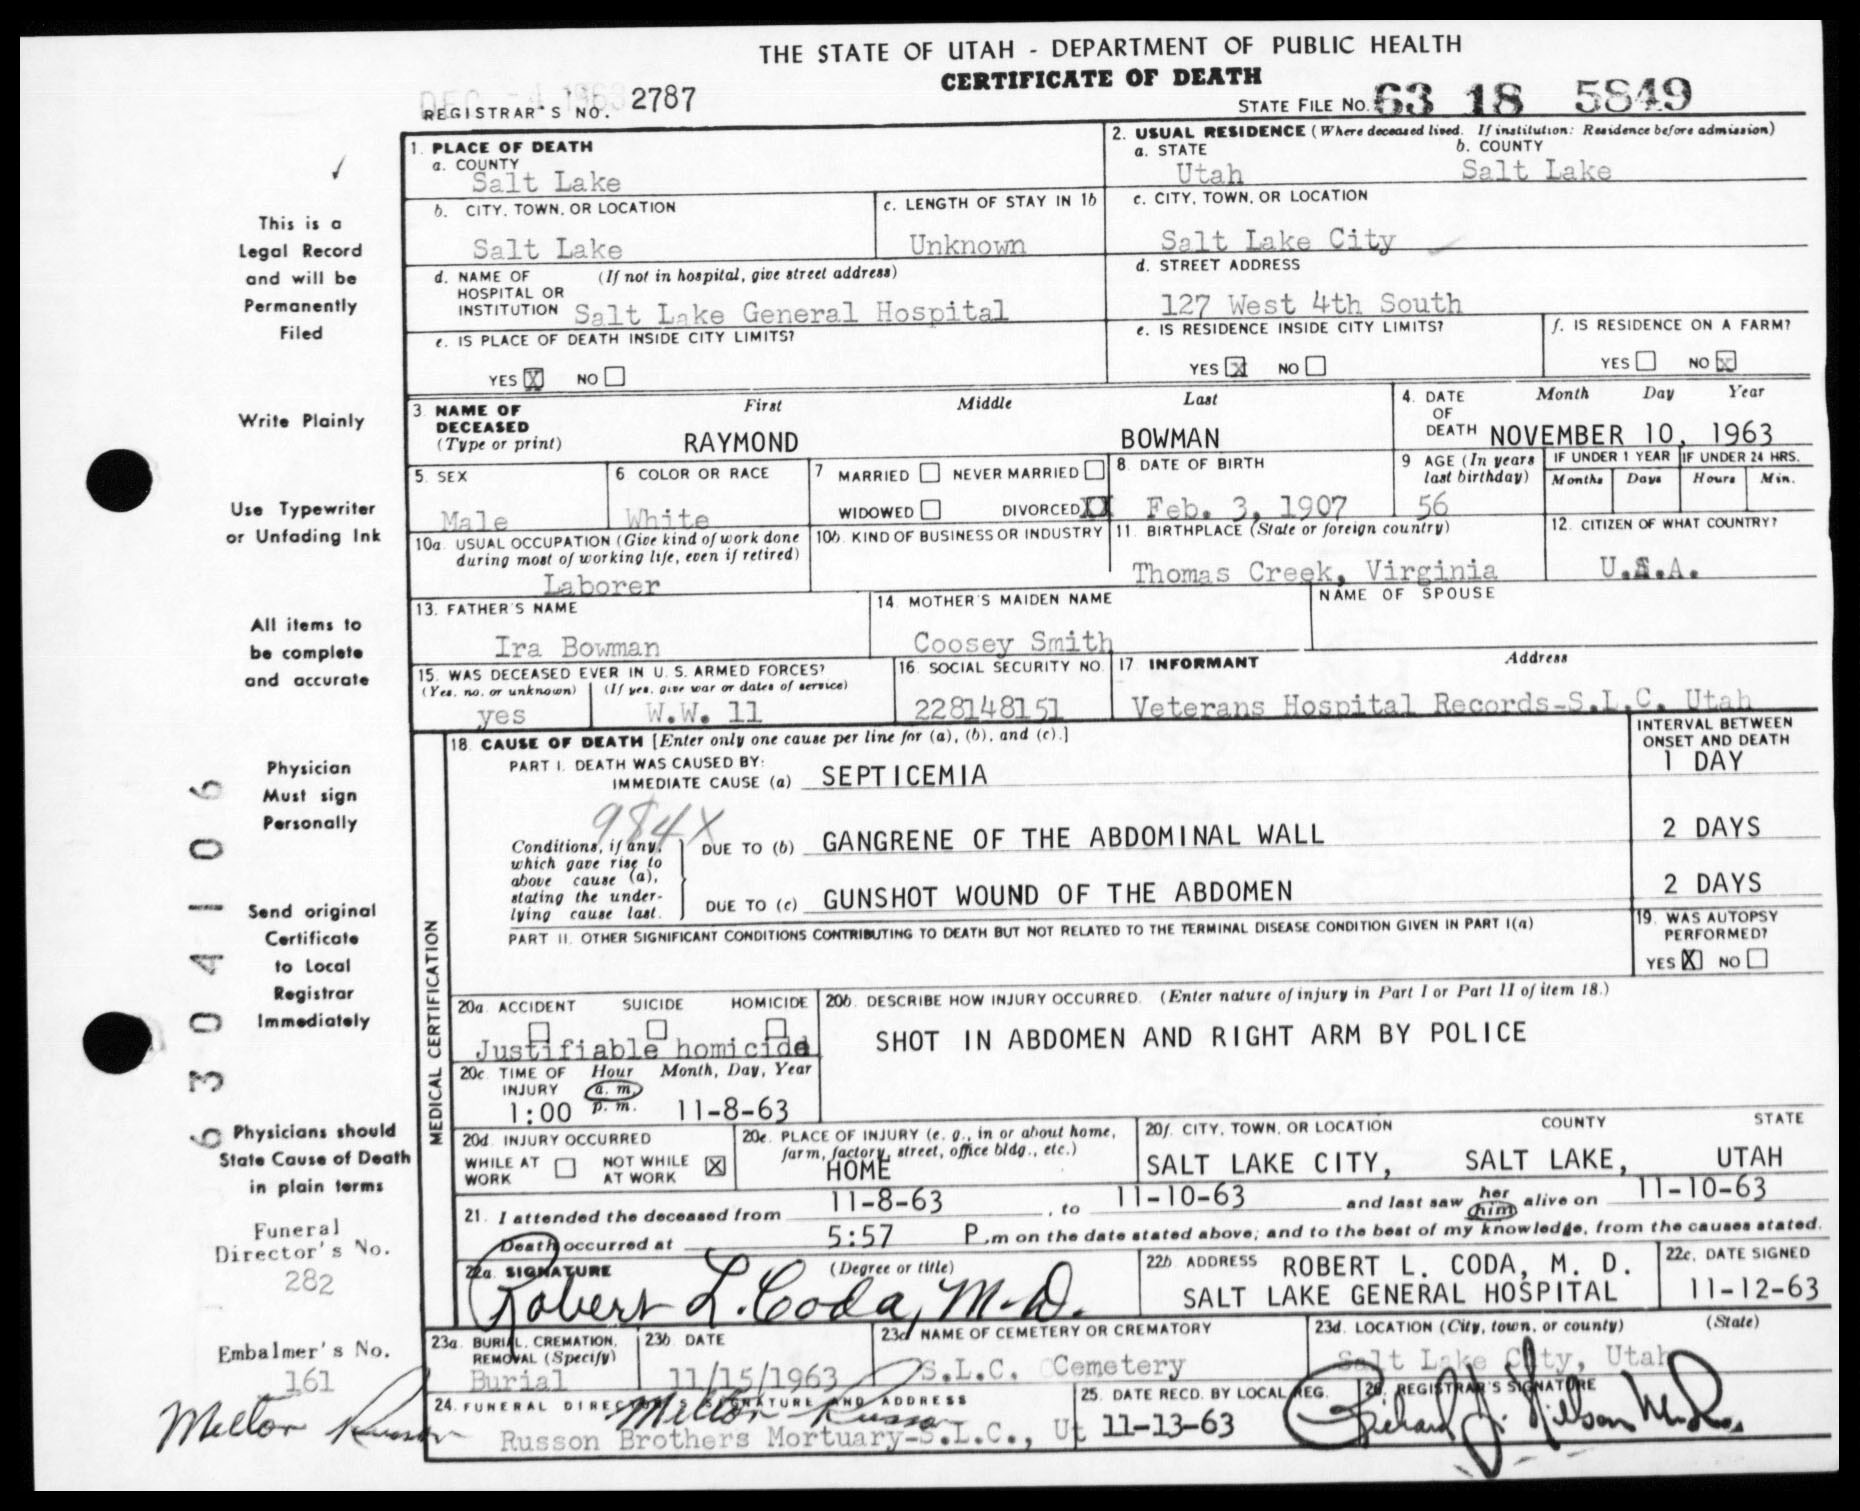 THE STATE OF UTAH - DEPARTMENT OF PUBLIC HEALTH
CERTIFICATE OF DEATH
REGISTRAR'S NO. 2787
STATE FILE NO. 63 18 5849
1. PLACE OF DEATH
a. COUNTY
Salt Lake
2. USUAL RESIDENCE (Where deceased lived. If institution: Residence before admission)
a. STATE b. COUNTY
Utah Salt Lake
b. CITY, TOWN, OR LOCATION
Salt Lake
c. LENGTH OF STAY IN 1b
Unknown
c. CITY, TOWN, OR LOCATION
Salt Lake City
d. NAME OF HOSPITAL OR INSTITUTION (If not in hospital, give street address)
Salt Lake General Hospital
d. STREET ADDRESS
127 West 4th South
e. IS PLACE OF DEATH INSIDE CITY LIMITS?
YES X NO
e. IS RESIDENCE INSIDE CITY LIMITS?
YES X NO
f. IS RESIDENCE ON A FARM?
YES NO X
3. NAME OF DECEASED (Type or print)
First Middle Last
RAYMOND BOWMAN
4. DATE OF DEATH Month Day Year
NOVEMBER 10, 1963
5. SEX
Male
6 COLOR OR RACE
White
7 MARRIED NEVER MARRIED
WIDOWED DIVORCED XX
8. DATE OF BIRTH
Feb. 3, 1907
9 AGE (In years last birthday)
56
IF UNDER 1 YEAR IF UNDER 24 HRS.
Months Days Hours Min.
10a. USUAL OCCUPATION (Give kind of work done during most of working life, even if retired)
Laborer
10b. KIND OF BUSINESS OR INDUSTRY
11. BIRTHPLACE (State or foreign country)
Thomas Creek, Virginia
12. CITIZEN OF WHAT COUNTRY?
U.S.A.
13. FATHER'S NAME
Ira Bowman
14. MOTHER'S MAIDEN NAME
Coosey Smith
NAME OF SPOUSE
15. WAS DECEASED EVER IN U. S. ARMED FORCES?
(Yes, no, or unknown) (If yes, give war or dates of service)
yes W.W. 11
16. SOCIAL SECURITY NO.
228148151
17. INFORMANT Address
Veterans Hospital Records-S.L.C. Utah
MEDICAL CERTIFICATION
18. CAUSE OF DEATH [Enter only one cause per line for (a), (b), and (c).]
INTERVAL BETWEEN ONSET AND DEATH
PART I. DEATH WAS CAUSED BY:
IMMEDIATE CAUSE (a) SEPTICEMIA 1 DAY
984X
Conditions, if any, which gave rise to above cause (a), stating the underlying cause last.
DUE TO (b) GANGRENE OF THE ABDOMINAL WALL 2 DAYS
DUE TO (c) GUNSHOT WOUND OF THE ABDOMEN 2 DAYS
PART II. OTHER SIGNIFICANT CONDITIONS CONTRIBUTING TO DEATH BUT NOT RELATED TO THE TERMINAL DISEASE CONDITION GIVEN IN PART I(a)
19. WAS AUTOPSY PERFORMED?
YES X NO
20a. ACCIDENT SUICIDE HOMICIDE
Justifiable homicide
20b. DESCRIBE HOW INJURY OCCURRED. (Enter nature of injury in Part I or Part II of item 18.)
SHOT IN ABDOMEN AND RIGHT ARM BY POLICE
20c. TIME OF INJURY Hour Month, Day, Year
a. m.
1:00 p. m. 11-8-63
20d. INJURY OCCURRED
WHILE AT WORK NOT WHILE AT WORK X
20e. PLACE OF INJURY (e. g., in or about home, farm, factory, street, office bldg., etc.)
HOME
20f. CITY, TOWN, OR LOCATION COUNTY STATE
SALT LAKE CITY, SALT LAKE, UTAH
21. I attended the deceased from 11-8-63, to 11-10-63 and last saw her him alive on 11-10-63
Death occurred at 5:57 P.m on the date stated above; and to the best of my knowledge, from the causes stated.
22a. SIGNATURE (Degree or title)
Robert L. Coda, M.D.
22b. ADDRESS ROBERT L. CODA, M. D.
SALT LAKE GENERAL HOSPITAL
22c. DATE SIGNED
11-12-63
23a. BURIAL, CREMATION, REMOVAL (Specify)
Burial
23b. DATE
11/15/1963
23c. NAME OF CEMETERY OR CREMATORY
S.L.C. Cemetery
23d. LOCATION (City, town, or county) (State)
Salt Lake City, Utah
24. FUNERAL DIRECTOR'S SIGNATURE AND ADDRESS
Milton Russon
Russon Brothers Mortuary-S.L.C., Ut
25. DATE RECD. BY LOCAL REG.
11-13-63
26. REGISTRAR'S SIGNATURE
This is a
Legal Record
and will be
Permanently
Filed
Write Plainly
Use Typewriter
or Unfading Ink
All items to
be complete
and accurate
Physician
Must sign
Personally
Send original
Certificate
to Local
Registrar
Immediately
Physicians should
State Cause of Death
in plain terms
Funeral
Director's No.
282
Embalmer's No.
161
Milton Russon
6304106